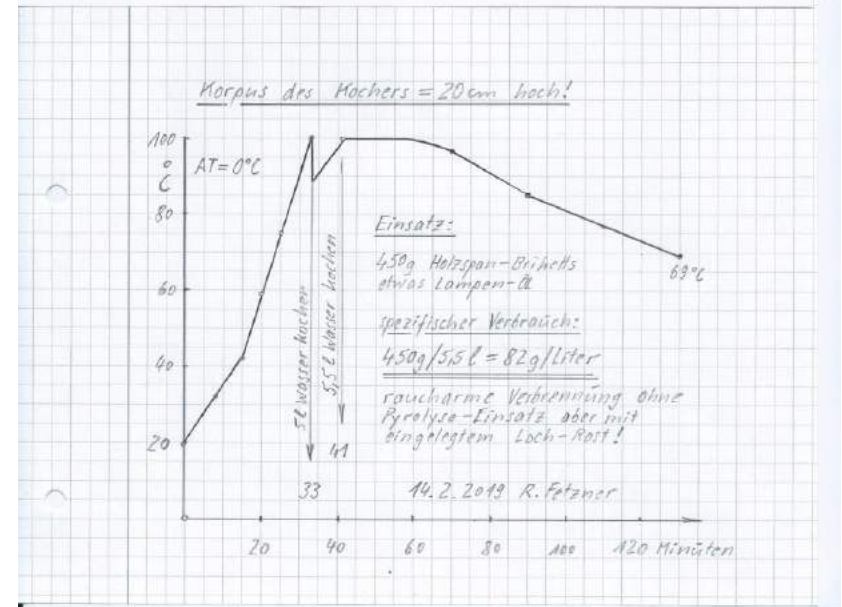 Korpus des Kochers = 20 cm hoch!
100
°C
AT = 0°C
80
60
40
20
5 l Wasser kochen
5,5 l Wasser kochen
33
41
Einsatz:
450g Holzspan-Briketts
etwas Lampen-Öl
spezifischer Verbrauch:
450g/5,5 l = 82g/Liter
raucharme Verbrennung ohne
Pyrolyse-Einsatz aber mit
eingelegtem Loch-Rost!
69°C
14.2.2019 R. Fetzner
20 40 60 80 100 120 Minuten